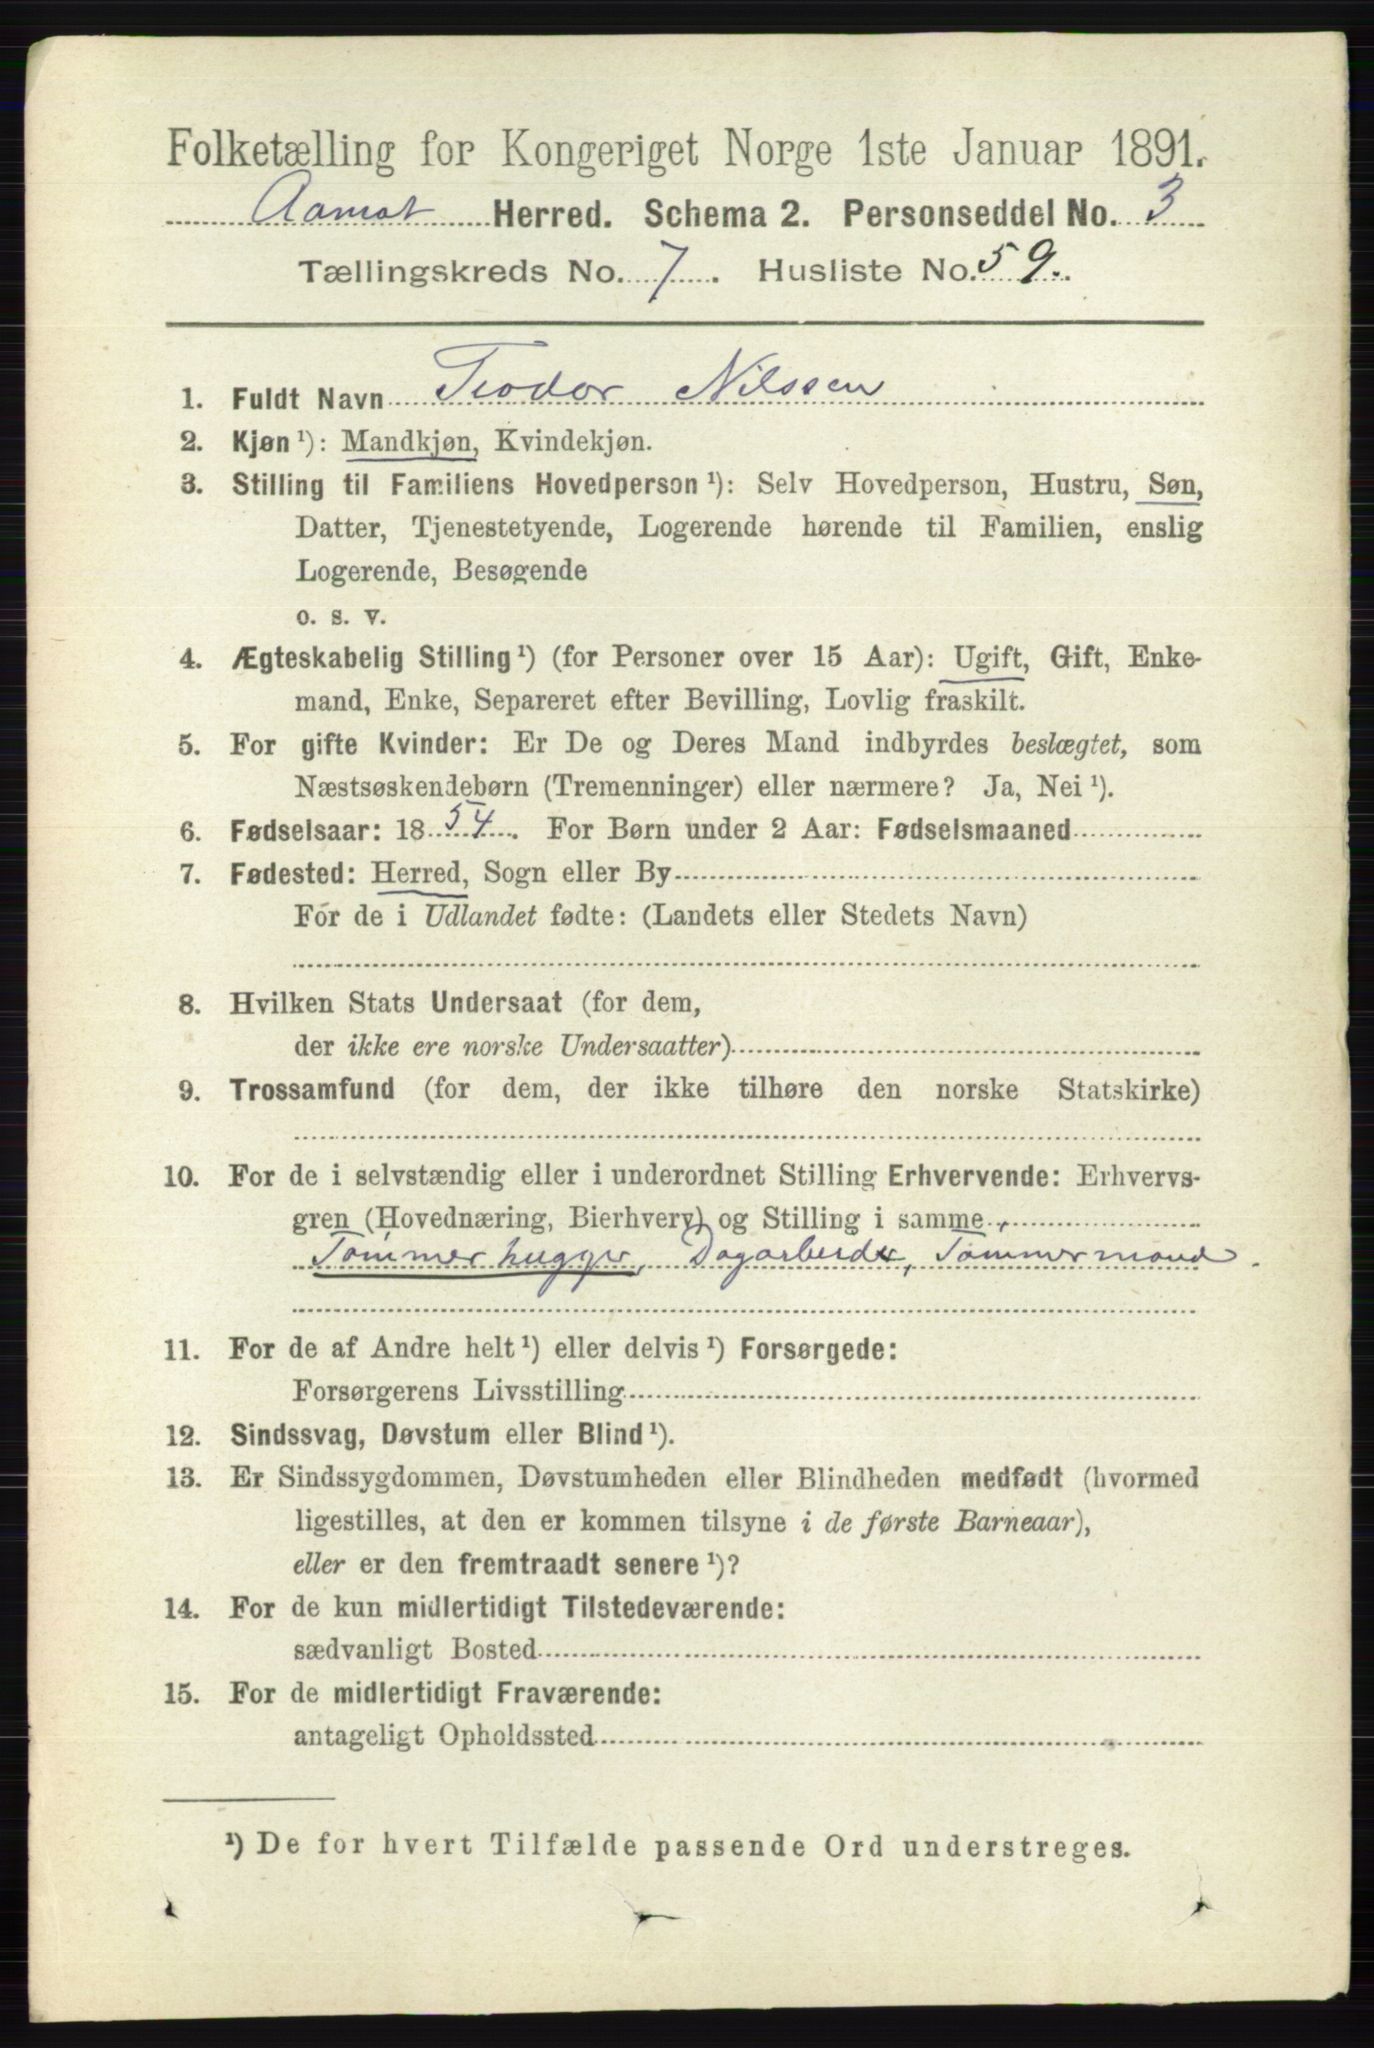 Folketælling for Kongeriget Norge 1ste Januar 1891.
Aamot Herred. Schema 2. Personseddel No. 3
Tællingskreds No. 7. Husliste No. 59.
1. Fuldt Navn Teodor Nilssen
2. Kjøn ¹): Mandkjøn, Kvindekjøn.
3. Stilling til Familiens Hovedperson ¹): Selv Hovedperson, Hustru, Søn,
Datter, Tjenestetyende, Logerende hørende til Familien, enslig
Logerende, Besøgende
o. s. v.
4. Ægteskabelig Stilling ¹) (for Personer over 15 Aar): Ugift, Gift, Enke-
mand, Enke, Separeret efter Bevilling, Lovlig fraskilt.
5. For gifte Kvinder: Er De og Deres Mand indbyrdes beslægtet, som
Næstsøskendebørn (Tremenninger) eller nærmere? Ja, Nei ¹).
6. Fødselsaar: 1854. For Børn under 2 Aar: Fødselsmaaned
7. Fødested: Herred, Sogn eller By
For de i Udlandet fødte: (Landets eller Stedets Navn)
8. Hvilken Stats Undersaat (for dem,
der ikke ere norske Undersaatter)
9. Trossamfund (for dem, der ikke tilhøre den norske Statskirke)
10. For de i selvstændig eller i underordnet Stilling Erhvervende: Erhvervs-
gren (Hovednæring, Bierhverv) og Stilling i samme
Tømmerhugger, Dagarbeider, Tømmermand.
11. For de af Andre helt ¹) eller delvis ¹) Forsørgede:
Forsørgerens Livsstilling
12. Sindssvag, Døvstum eller Blind ¹).
13. Er Sindssygdommen, Døvstumheden eller Blindheden medfødt (hvormed
ligestilles, at den er kommen tilsyne i de første Barneaar),
eller er den fremtraadt senere ¹)?
14. For de kun midlertidigt Tilstedeværende:
sædvanligt Bosted
15. For de midlertidigt Fraværende:
antageligt Opholdssted
¹) De for hvert Tilfælde passende Ord understreges.